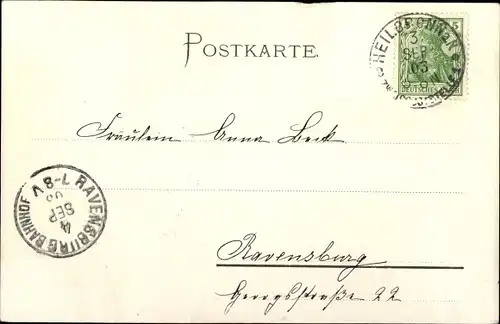 POSTKARTE.
HEILBRONN
3
SEP
03
5
DEUTSCHES
Fräulein Anna Beck
RAVENSBURG BAHNHOF
4
SEP
03
7-8 V
Ravensburg
Georgstraße 22